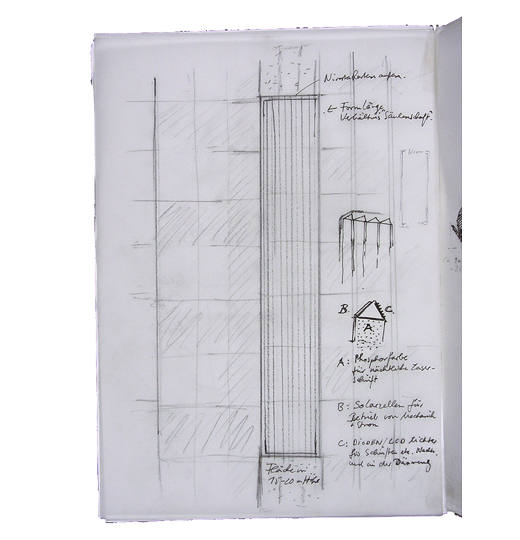 ← Form länge
Verhältnis Säulenschaft.
B. C.
A
A: Phosphorfarbe
für nächtliche Laser-
schrift
B: Solarzellen für
Betrieb von Mechanik
+ Strom
C: DIODEN/LCD lichter
für Schriften etc. Nachts
und in der Dämmerung
Fläche in
15-20 m Höhe